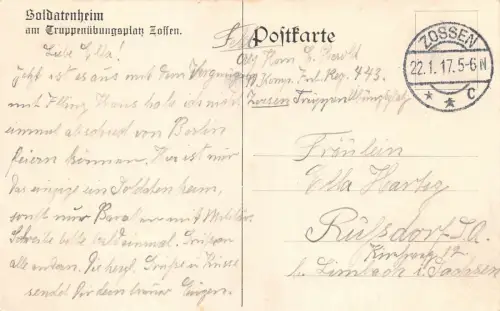 Soldatenheim
am Truppenübungsplatz Zossen.
Liebe Ella!
Jetzt ist es aus mit dem Vergnügen
mit Alfling Haus habe ich nicht
einmal abschied von Berlin
feiern können. Hier ist nur
das einzige ein Soldatenheim,
sonst nur Militär
Schreibe bitte bald einmal. Grüße an
alle andern. Die herzl. Grüße u. Küsse
sendet Dir dein treuer Eugen.
Postkarte
Feld
Abs. Kan. E.
Komp. Inf. Reg. 443.
Zossen Truppenübungsplatz
ZOSSEN
22.1.17.5-6N
* * c
Fräulein
Ella Hartig
Rußdorf S.A.
Kirchweg 12
b. Limbach i. Sachsen